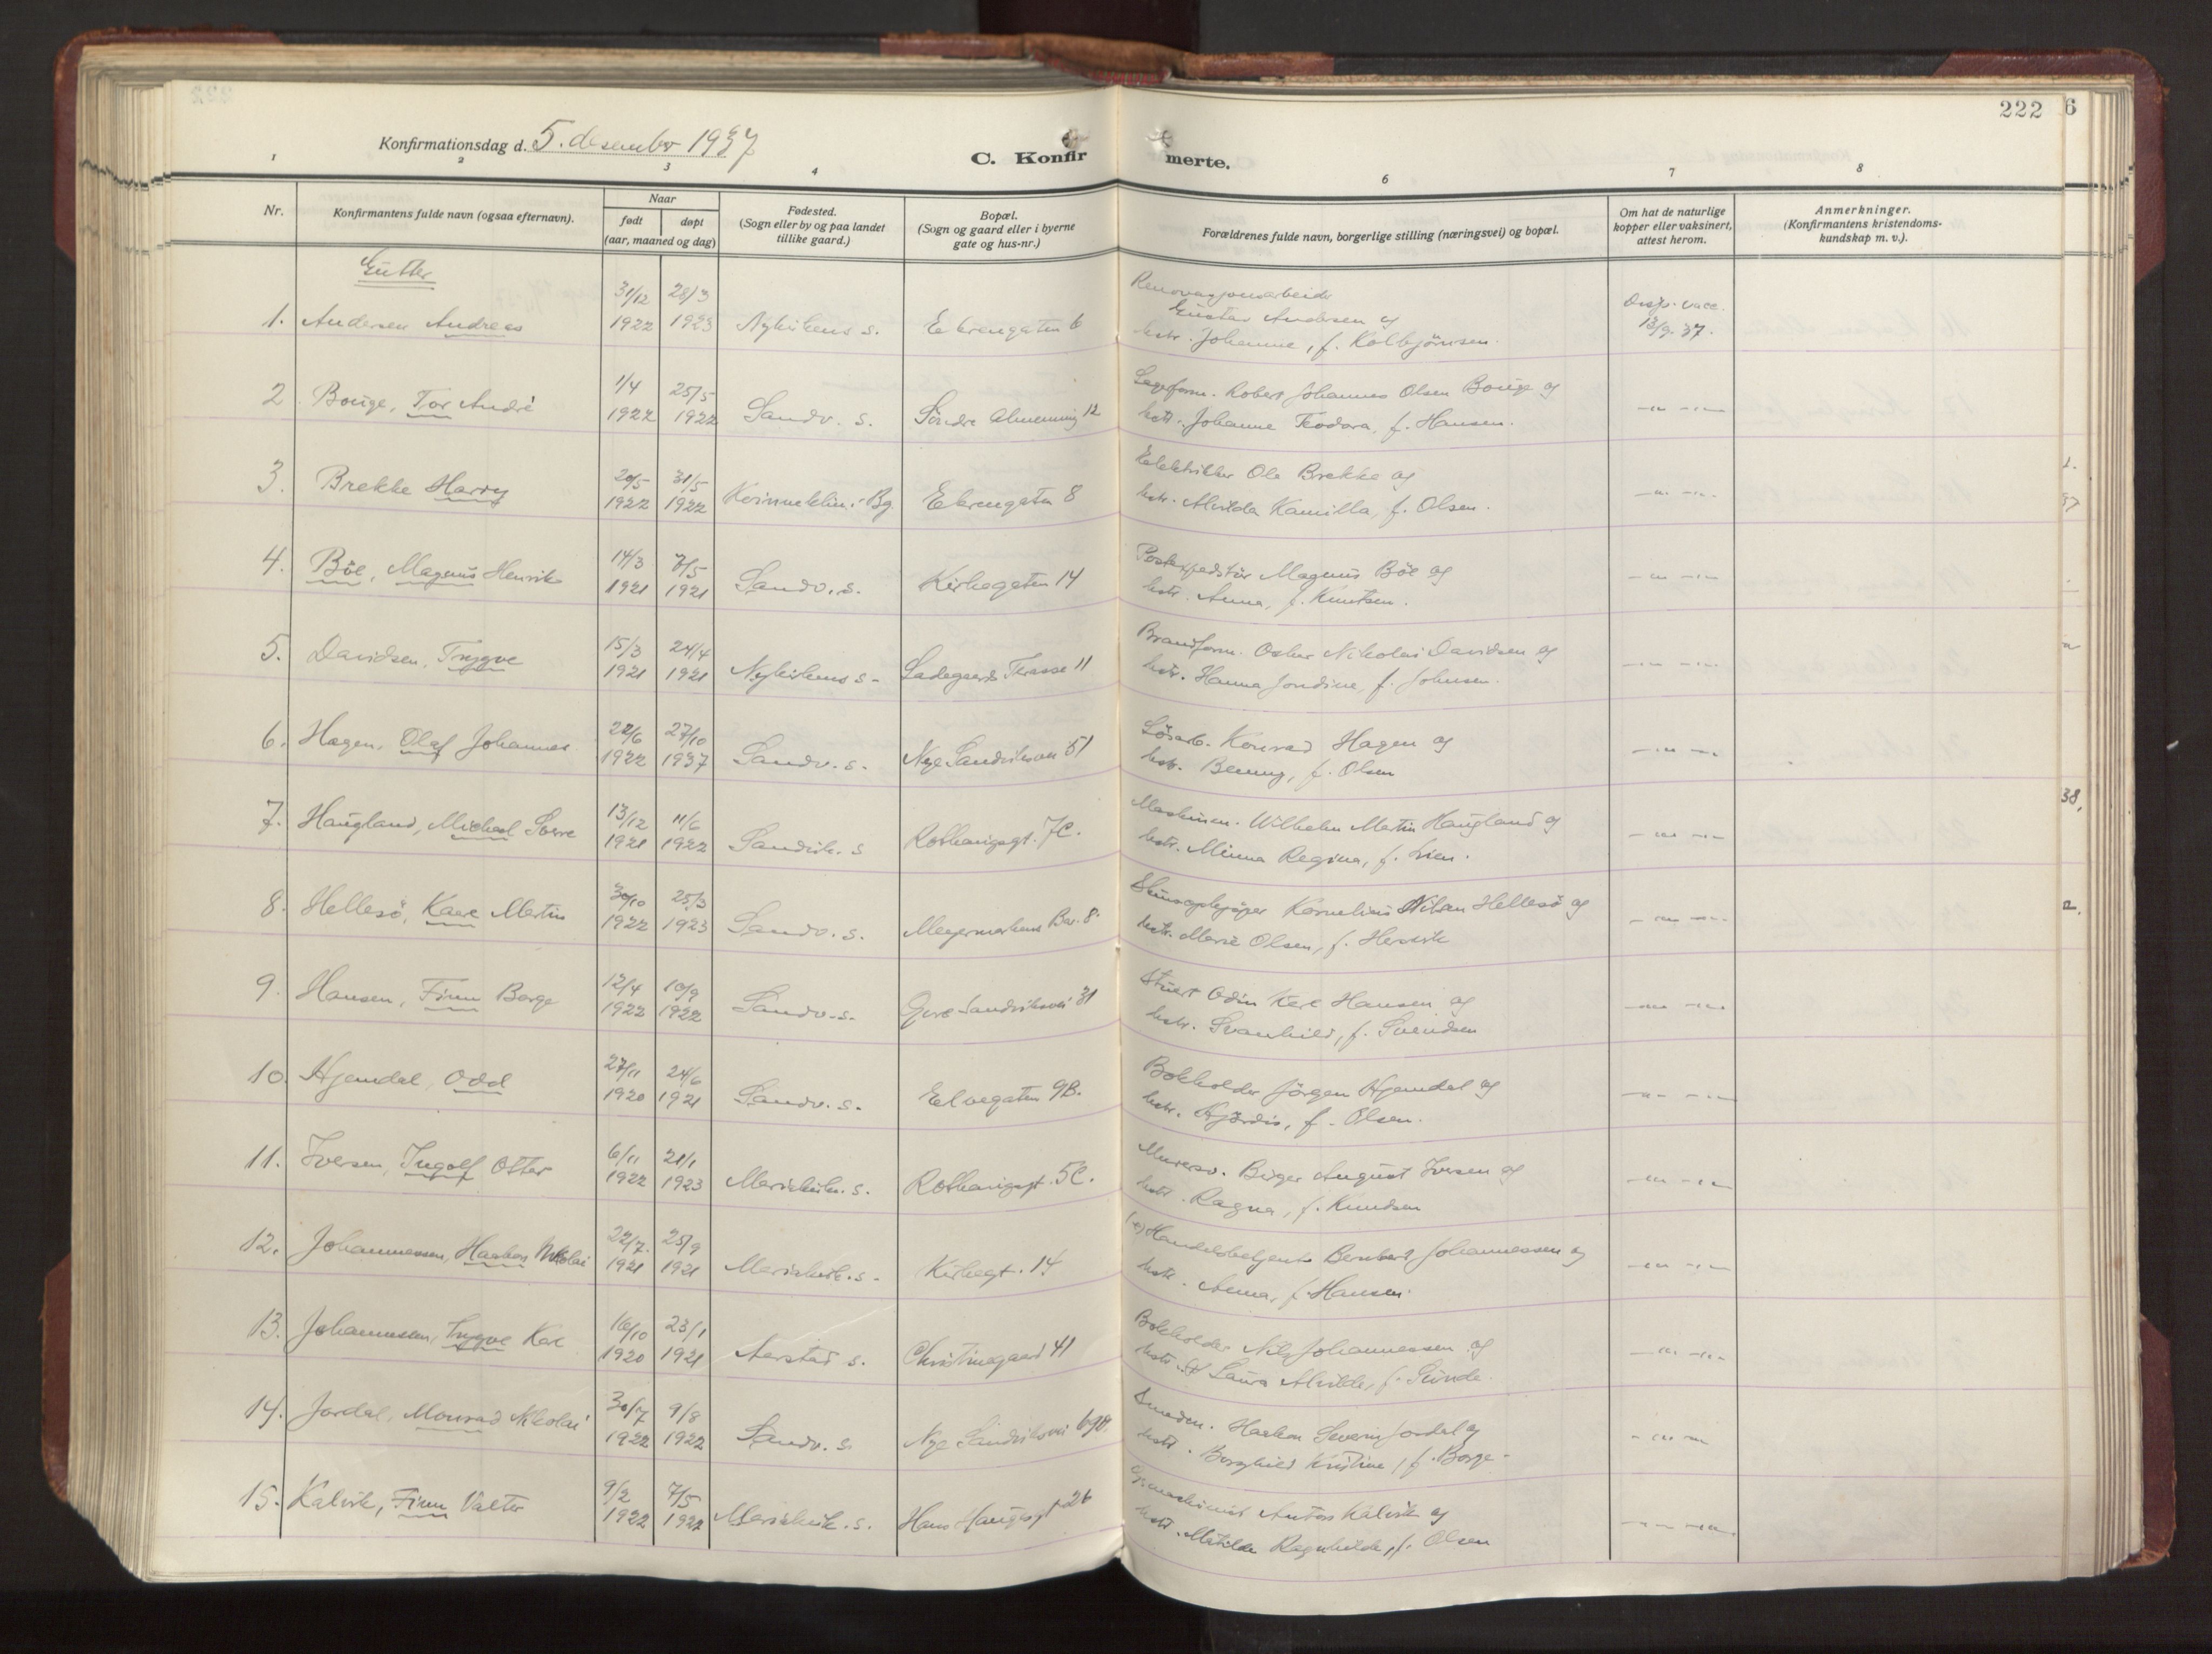 222 6
Konfirmationsdag d. 5. desember 1937
C. Konfir merte.
1 2 3 4 6 7 8
Nr.
Konfirmantens fulde navn (ogsaa efternavn).
Naar
født døpt
(aar, maaned og dag)
Fødested.
(Sogn eller by og paa landet
tillike gaard.)
Bopæl.
(Sogn og gaard eller i byerne
gate og hus-nr.)
Forældrenes fulde navn, borgerlige stilling (næringsvei) og bopæl.
Om hat de naturlige
kopper eller vaksinert,
attest herom.
Anmerkninger.
(Konfirmantens kristendoms-
kundskap m. v.).
Gutter
31/12 28/3 Renovasjonsarbeider
1. Andersen Andreas 1922 1923 Nykirkens s. Ekrengaten 6 Gustav Andersen og
hstr. Johanne, f. Kolbjörnsen.
Disp. vacc.
13/9.37.
1/4 25/5 Lagerform. Robert Johannes Olsen Bouge og
2 Bouge, Tor André 1922 1922 Sandv. s. Söndre Almenning 12 hstr. Johanne Teodora, f. Hansen. -"- -"-
20/5 31/5 Elektriker Ole Brekke og
3. Brekke Harry 1922 1922 Kvinneklin. Bg. Ekrengaten 8 hstr. Alvilda Kamilla, f. Olsen. -"- -"-
14/3 7/5 Postekspeditör Magnus Böe og
4. Böe, Magnus Henrik 1921 1921 Sandv. s. Kirkegaten 14 hstr. Anna, f. Knutsen. -"- -"-
15/3 24/4 Brandform. Oskar Nikolai Davidsen og
5. Davidsen, Trygve 1921 1921 Nykirkens s. Ladegaards Terasse 11 hstr. Hanna Jondine, f. Johnsen. -"- -"-
22/6 27/10 Lösarb. Konrad Hagen og
6. Hagen, Olaf Johannes 1922 1937 Sandv. s. Nye Sandviksvei 51 hstr. Benny, f. Olsen -"- -"-
13/12 11/6 Maskinm. Wilhelm Martin Haugland og
7. Haugland, Michael Sverre 1921 1922 Sandvik. s Rothaugsgt. 7C. hstr. Minna Regina, f. Lien. -"- -"-
30/10 25/3 Kornelius Nilsen Hellesö og
8. Hellesö, Kaare Martin 1922 1923 Sandv. s. Meyermarkens Bar. 8. hstr. Marie Olsen, f. -"- -"-
12/4 10/9 Stuert Odin Kare Hansen og
9. Hansen, Finn Borge 1922 1922 Sandv. s. Övre Sandviksvei 31 hstr. Svanhild, f. Svendsen -"- -"-
27/11 24/6 Bokholder Jörgen Hjemdal og
10. Hjemdal, Odd 1920 1921 Sandv. s. Elvegaten 9B. hstr. Hjördis, f. Olsen. -"- -"-
6/11 21/1 Murersv. Birger August Iversen og
11. Iversen, Ingolf Otter 1922 1923 Mariakirk. s. Rothaugsgt. 5C. hstr. Ragna, f. Knudsen -"- -"-
22/7. 25/9 (+) Handelsbetjent Bernhard Johannessen og
12. Johannessen, Haakon Nikolai 1921 1921 Mariakirk. s. Kirkegt. 14 hstr. Anna, f. Hansen. -"- -"-
16/10 23/1 Bokholder Nils Johannessen og
13. Johannessen, Trygve Kare 1920 1921 Aarstad s. Christinegaard 41 hstr. Laura Alvilde, f. Sunde. -"- -"-
30/7 9/8 Haakon Severin Jordal og
14. Jordal, Monrad Nikolai 1922 1922 Sandv. s. Nye Sandviksvei 69a. hstr. Borghild Kristine, f. Borge. -"-
9/2 7/5 Anton Kalvik og
15. Kalvik, Finn Valter 1922 1922 Mariakirk. s. Hans Haugesgt. 26 hstr. Matilde Ragnhilde, f. Olsen -"- -"-
38,